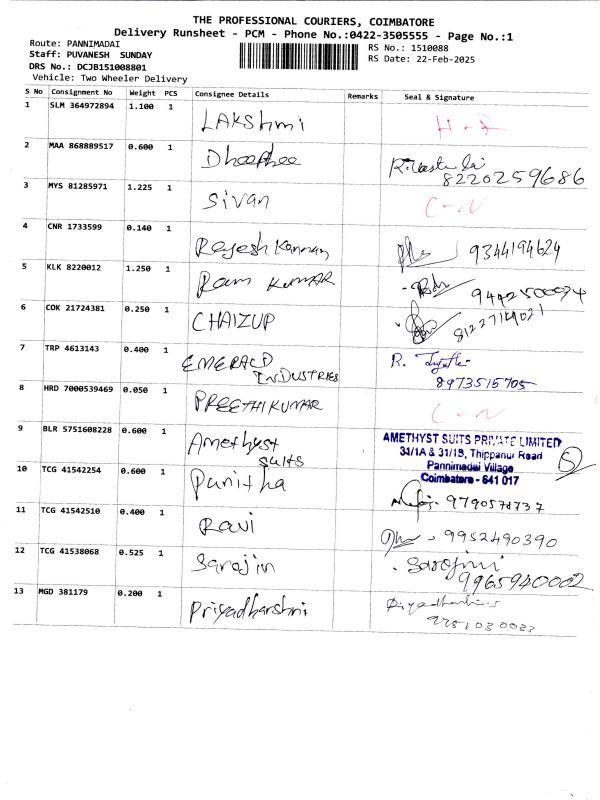 THE PROFESSIONAL COURIERS, COIMBATORE
Delivery Runsheet - PCM - Phone No.:0422-3505555 - Page No.:1
Route: PANNIMADAI
RS No.: 1510088
Staff: PUVANESH SUNDAY
RS Date: 22-Feb-2025
DRS No.: DCJB151008801
Vehicle: Two Wheeler Delivery
S No Consignment No Weight PCS Consignee Details Remarks Seal & Signature
1 SLM 364972894 1.100 1
LAKShmi
2 MAA 868889517 0.600 1
Dheephee
8220259686
3 MYS 81285971 1.225 1
Sivan C-N
4 CNR 1733599 0.140 1
Rajesh Kannan 9344194624
5 KLK 8220012 1.250 1
Ram KUMAR
6 COK 21724381 0.250 1
CHAIZUP
7 TRP 4613143 0.400 1
EMERALD R.
INDUSTRIES 8973515705
8 HRD 7000539469 0.050 1
PREETHIKUMAR C-N
9 BLR 5751608228 0.600 1
Amethyst AMETHYST SUITS PRIVATE LIMITED
Suits 31/1A & 31/1B, Thippanur Road
Pannimadai Village
Coimbatore - 641 017
5
10 TCG 41542254 0.600 1
Punitha
11 TCG 41542510 0.400 1
Ravi 9952490390
12 TCG 41538068 0.525 1
Sarojin Sarojini
9965940002
13 MGD 381179 0.200 1
Priyadharshni